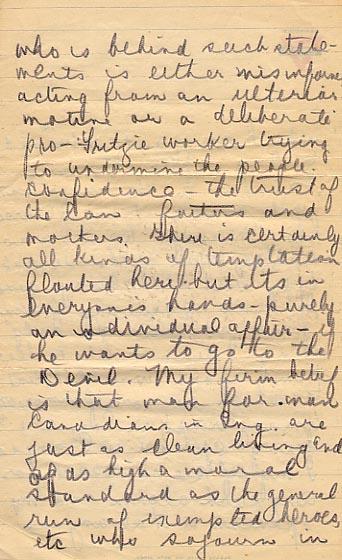 who is behind such state-
ments is either misinforme
acting from an ulterior
motive or a deliberate
pro-Fritzie worker trying
to undermine the people
confidence - the trust of
the Can. fathers and
mothers. There is certainly
all kinds of temptation
flouted here but its in
everyone's hands - purely
an individual affair - if
he wants to go to the
Devil. My firm belief
is that man for man
Canadians in Eng. are
just as clean living and
of as high a moral
standard as the general
run of exempted heroes,
etc who sojourn in